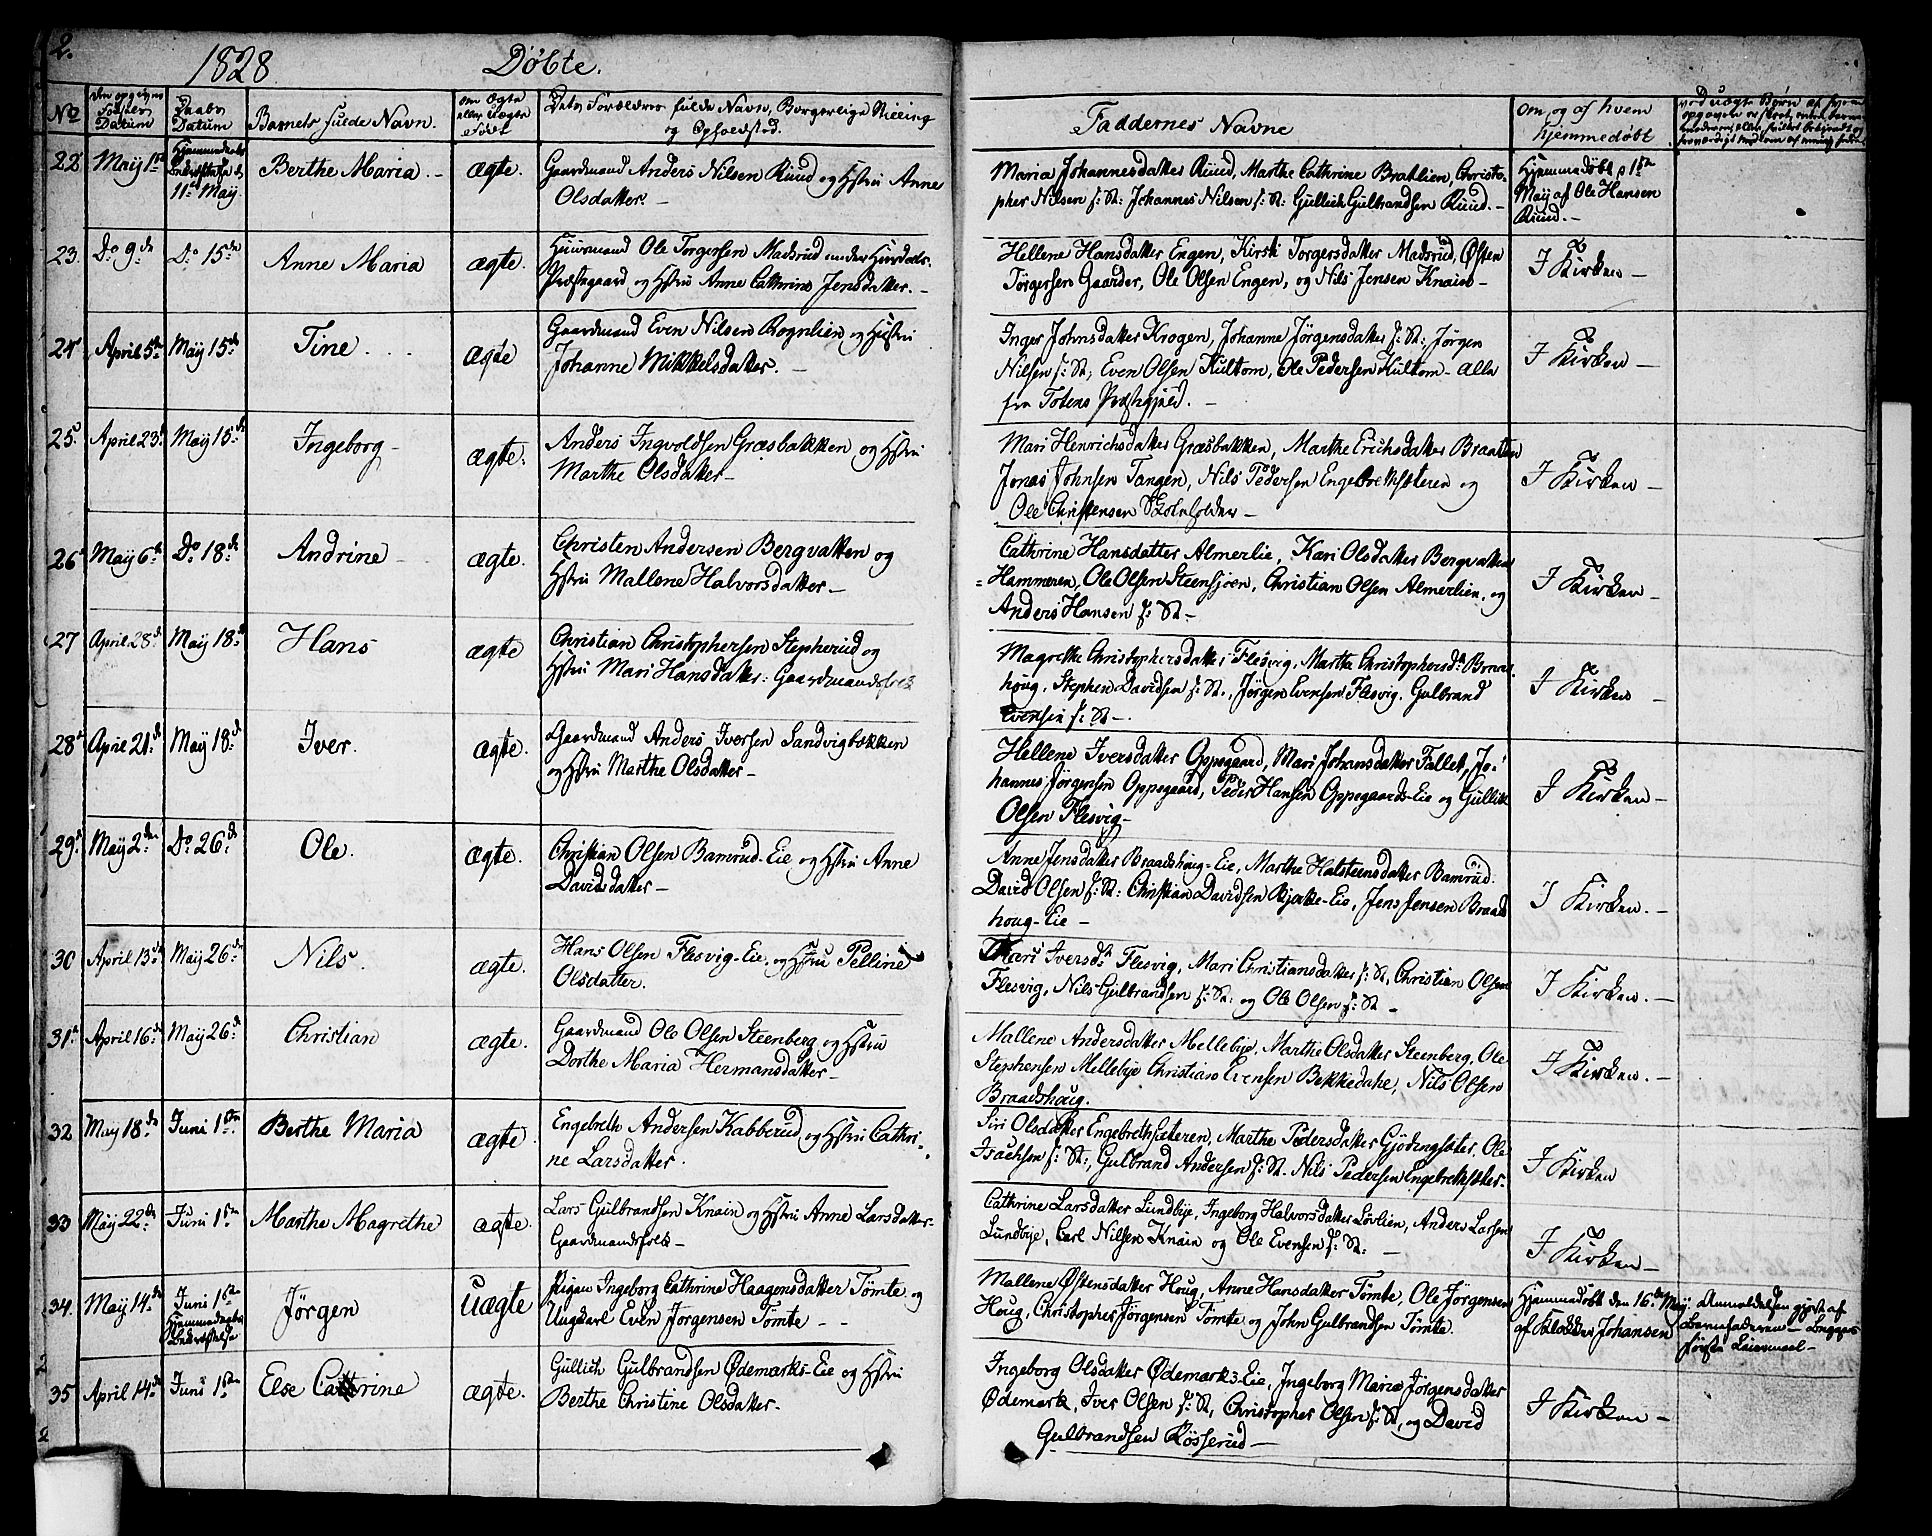 2.
1828 Døbte.
No
Daabs Datum
Barnets fulde Navn.
om Ægte eller Uægte Født
Dets Forældres fulde Navn, Borgerlige Stilling og Opholdsted.
Faddernes Navne
om og af hvem hjemmedøbt
22 May 1ste
11te May
Berthe Maria. –
ægte.
Gaardmand Anders Nilsen Ruud og Hstru Anne
Olsdatter. –
Maria Johannesdatter Ruud, Marthe Cathrine Bratlien, Christo-
pher Nilsen s: St: Johannes Nilsen s: St: Gullich Gulbrandsen Ruud. –
Hjemmedøbt 1ste
May af Ole Hansen
Ruud. –
23. Do 9de Do 15de Anne Maria ægte.
Huusmand Ole Torgersen Madsrud under Hurdals-
Præstegaard og Hstru Anne Cathrine Jensdatter. –
Hellene Hansdatter Engen, Kirsti Torgersdatter Madsrud, Østen
Torgersen Gaarder, Ole Olsen Engen, og Nils Jensen Knain –
I Kirken –
24 April 5te May 15de Tine . . . ægte
Gaardmand Even Nilsen Rognlien og Hustru
Johanne Mikkelsdatter. –
Inger Johnsdatter Krogen, Johanne Jörgensdatter s: St: Jørgen
Nilsen s: St, Even Olsen Kultom, Ole Pedersen Kultom – alle
fra Totens Præstegjeld. –
I Kirken –
25 April 23 May 15de Ingeborg – ægte.
Anders Ingvoldsen Græsbakken og Hstru
Marthe Olsdatter –
Mari Henrichsdatter Græsbakken, Marthe Erichsdatter Braaten
Jonas Johnsen Tangen, Nils Pedersen Engebrethsæteren og
Ole Christensen Skoleholder –
I Kirken –
26 May 6te Do 18de Andrine – ægte.
Christen Andersen Bergvatten og
Hstru Mallene Halvorsdatter –
Cathrine Hansdatter Almerlie, Kari Olsdatter Bergvatten
Hammeren, Ole Olsen Steensjøen, Christian Olsen Almerlien, og
Anders Hansen s: St –
I Kirken –
27 April 28de May 18de Hans ægte
Christian Christophersen Stepherud og
Hstru Mari Hansdatter: Gaardmandsfolk
Magrethe Christophersdatter Flesvig, Marthe Christophersdr Braads-
houg, Stephen Davidsen s: St., Jörgen Evensen Flesvig, Gulbrand
Evensen s: St –.
I Kirken –
28 April 21de May 18de Iver. ægte.
Gaardmand Anders Iversen Sandvigbækken
og Hstru Marthe Olsdatter –
Hellene Iversdatter Oppegaard, Mari Johansdatter Fallet, Jo-
hannes Jørgensen Oppegaard, Peder Hansen Oppegaards-Eie og Gullik
Olsen Flesvig –
I Kirken –
29 May 2den Do 26de Ole. ægte.
Christian Olsen Bamrud-Eie og Hstru Anne
Davidsdatter –
Anne Jensdatter Braadshoug-Eie, Marthe Halsteinsdatter Bamrud
David Olsen s: St: Christian Davidsen Bjørke-Eie, Jens Jensen Braads
houg-Eie –
I Kirken. –
30 April 13de May 26de Nils. ægte.
Hans Olsen Flesvig-Eie, og Hstru Pelline
Olsdatter.
Mari Iversdr Flesvig, Mari Christiansdatter s: St, Christian Olsen
Flesvig, Nils Gulbrandsen s: St: og Ole Olsen s: St –
I Kirken. –
31 April 16de May 26de Christian ægte.
Gaardmand Ole Olsen Steenberg og Hstru
Dorthe Maria Hermansdatter –
Mallene Andersdatter Mellebye, Marthe Olsdatter Steenberg, Ole
Stephensen Mellebye Christian Evensen Bekkedahl, Nils Olsen
Braadshoug.
I Kirken. –
32 May 18de Juni 1ste Berthe Maria ægte.
Engebreth Andersen Kabberud og Hstru Cathri-
ne Larsdatter.
Siri Olsdatter Engebrethsæteren, Marthe Pedersdatter Gjødingsæter, Ole
Isachsen s: St:, Gulbrand Andersen s: St. Nils Pedersen Engebrethsæter.
I Kirken
33 May 22de Juni 1ste Marthe Magrethe ægte.
Lars Gulbrandsen Knain og Hstru Anne Larsdatter –
Gaardmandsfolk –
Cathrine Larsdatter Lundbye, Ingeborg Halvorsdatter Løvlien, Anders Larsen
Lundbye, Carl Nilsen Knain og Ole Evensen s: St: –
I Kirken –
34. May 14de Juni 1ste
Jörgen Uægte
Pigen Ingeborg Cathrine Haagensdatter Tömte og
Ungkarl Even Jørgensen Tömte – –
Mallene Østensdatter Houg, Anne Hansdatter Tømte, Ole Jørgensen
Houg, Christopher Jørgensen Tömte og John Gulbrandsen Tømte.
Hjemmedøbt den 16de May
af Klokker Johansen
Anmeldelsen gjort af
Barnefaderen – begges
første Leiermaal –
35 April 14de Juni 1ste Else Cathrine ægte.
Gullich Gulbrandsen Ødemarks-Eie og Hstru
Berthe Christine Olsdatter –
Ingeborg Olsdatter Ødemarks-Eie, Ingeborg Maria Jörgensdatter
Ødemark, Iver Olsen s: St, Christopher Olsen s: St, og David
Gulbrandsen Rösserud –
I Kirken –